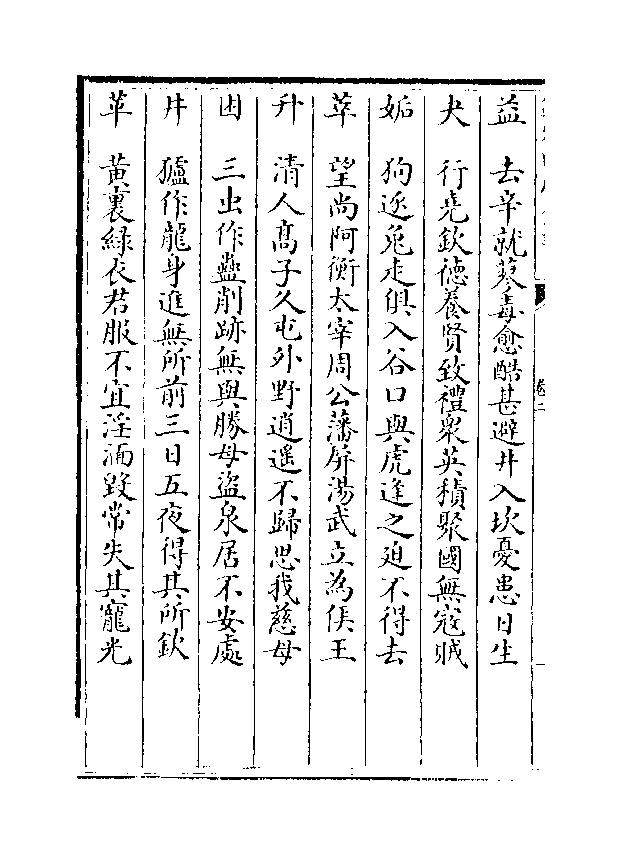 益　去辛就蓼毒愈酷甚避井入坎憂患日生
夬　行堯欽德養賢致禮衆英積聚國無寇賊
姤　狗逐兔走俱入谷口與虎逢之迫不得去
萃　望尚阿衡太宰周公藩屏湯武立為侯王
升　清人高子久屯外野逍遙不歸思我慈母
困　三虫作蠱削跡無與勝母盜泉居不安處
井　獹作龍身進無所前三日五夜得其所欽
革　黃裏綠衣君服不宜淫湎毀常失其寵光
卷二